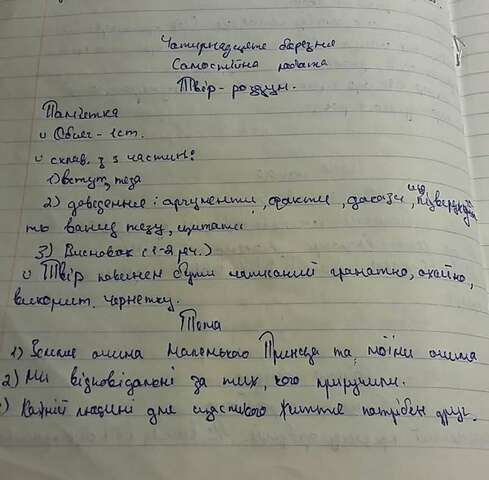 Чотирнадцяте березня
Самостійна робота
Твір-роздум.
Пам'ятка
Обсяг - 1 ст.
склад. з 3 частин:
1) вступ, теза
2) доведення: аргументи, факти, докази, що підтверджу
ть вашу тезу, цитати
3) Висновок (1-2 реч.)
Твір повинен бути написаний грамотно, охайно,
використ. чернетку.
Тема
1) Земля очима Маленького Принца та моїми очима
2) Ми відповідальні за тих, кого приручили.
) Кожній людині для щасливого життя потрібен друг.